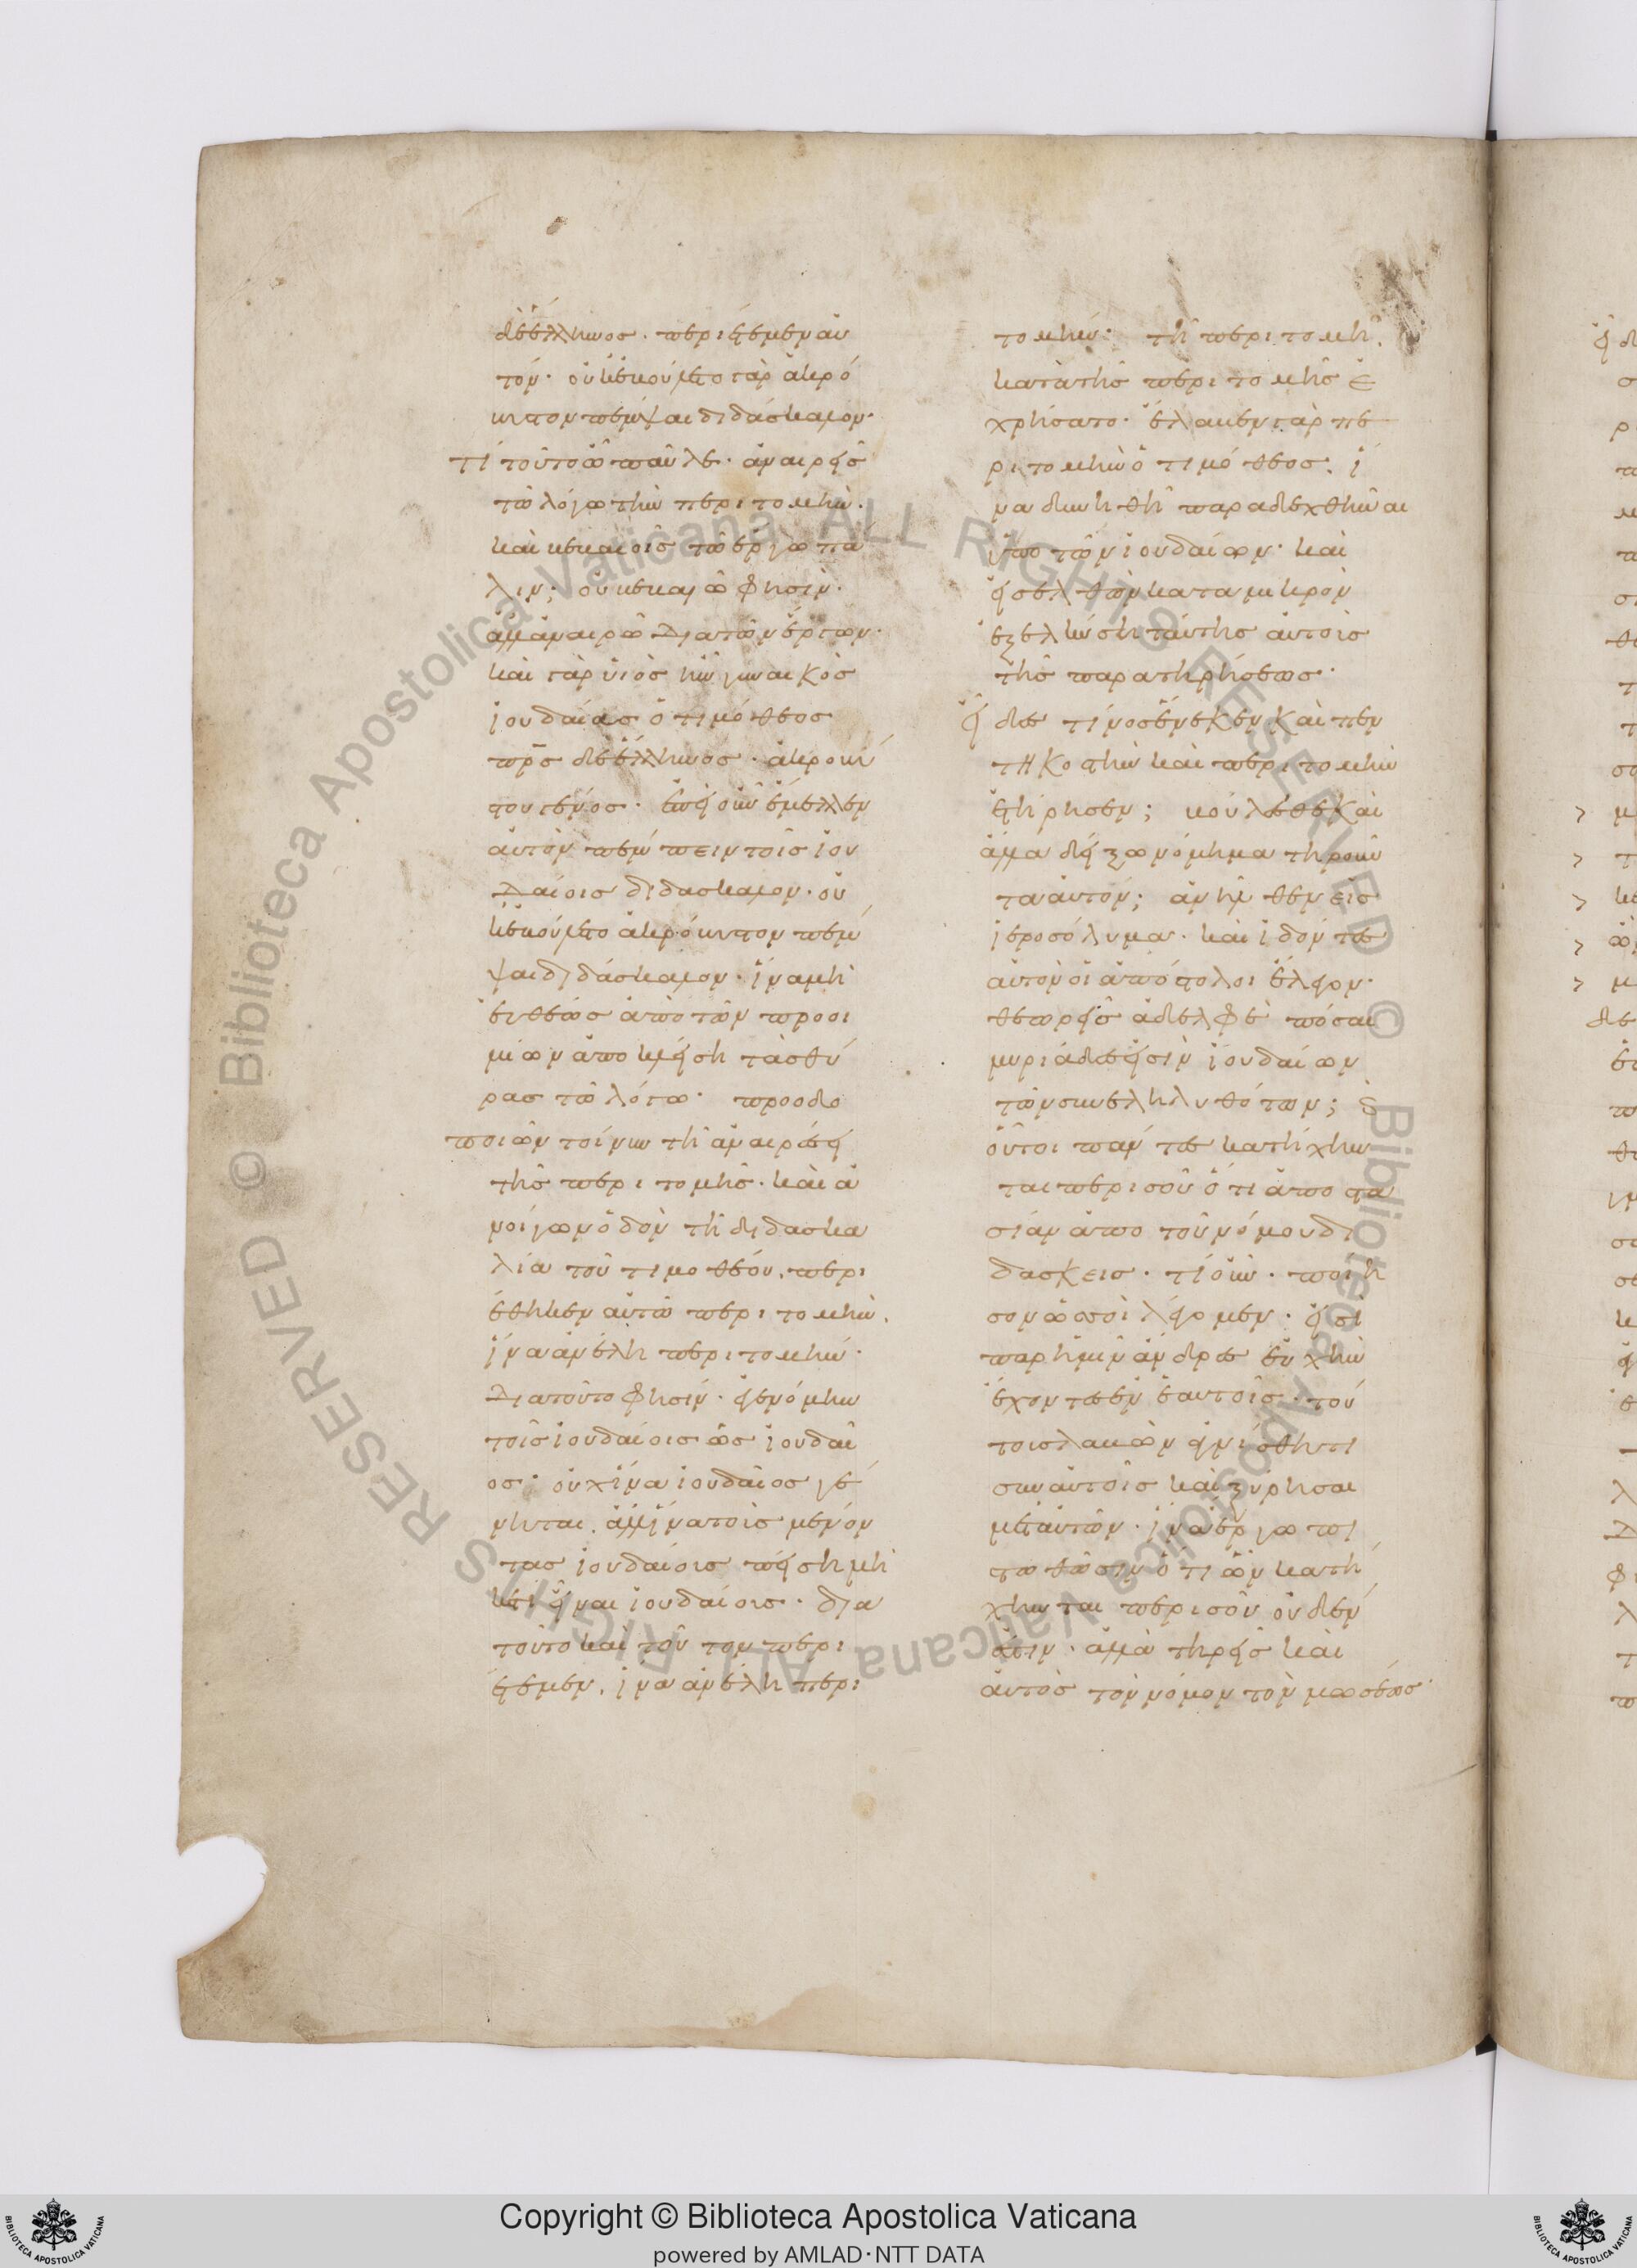 δὲ ἕλληνος· περιέτεμεν αὐ
τόν· οὐκ ἐκούλετο γὰρ ἀκρό
κυστον πέμψαι διδάσκαλον·
τί τοῦτο ὦ παῦλε· ἀναιρεῖσ
τῶ λόγω τὴν περιτομὴν·
καὶ κεκαιοῖς τῶ ἔργω πά
λιν; οὐ κεκαιῶ φησὶν·
ἀλλ' ἀναιρῶ διὰ τῶν ἔργων·
καὶ γὰρ υἱὸς ἦν γυναικὸς
ἰουδαίας ὁ τιμόθεος
πρς δὲ ἕλληνος· ἀκροκύ
στου γένος· ἐπεὶ οὖν ἔμελλεν
αὐτὸν πέμπειν τοῖς ἰου
δαίοις διδάσκαλον· οὐ
κ ἐκούλετο ἀκρόκυστον πέμ
ψαι διδάσκαλον· ἵνα μὴ
εὐθέως ἀπὸ τῶν προοι
μίων ἀποκλείση τὰς θύ
ρας τῶ λόγω· προοδο
ποιῶν τοίνυν τῆ ἀναιρέσει
τῆς περιτομῆς· καὶ ἀ
νοίγων ὁδὸν τῆ διδασκα
λία τοῦ τιμοθέου· περι
έθηκεν αὐτῶ περιτομὴν·
ἵνα ἀνέλη περιτομήν·
διατοῦτο φησίν· ἐγενόμην
τοῖς ἰουδαίοις ὡς ἰουδαῖ
ος· οὐχ ἵνα ἰουδαῖος γέ
νηται· ἀλλ' ἵνα τοὺς μένον
τας ἰουδαίους πείση μη
κέτι εἶναι ἰουδαίους· δια
τοῦτο καὶ τοῦτον περι
έτεμεν· ἵνα ἀνέλη περι
τομήν· τῆ περιτομῆ
κατὰ τῆς περιτομῆς ἐ
χρήσατο· ἔλακεν γὰρ πε
ριτομὴν ὁ τιμόθεος· ἵ
να δυνηθῆ παραδεχθῆναι
ὑπὸ τῶν ἰουδαίων· καὶ
εἰσελθὼν κατὰ μικρὸν
ἐξελκύση ταύτης αὐτοὺς
τῆς παρατηρήσεως·
εἶδες τίνος ἕνεκεν καὶ πεν
τηκοστὴν καὶ περιτομὴν
ἐτήρησεν; κούλεσθε καὶ
ἄλλα δείξω νόμιμα τηροῦν
τα αὐτόν; ἀνῆλθεν εἰς
ἱεροσόλυμα· καὶ ἰδόντες
αὐτὸν οἱ ἀπόστολοι ἔλεγον·
θεωρεῖς ἀδελφὲ πόσαι
μυριάδες εἰσὶν ἰουδαίων
τῶν συνεληλυθότων; καὶ
οὗτοι πάντες κατήχην
ται περὶ σοῦ ὅτι ἀποστα
σίαν ἀπὸ τοῦ νόμου δι
δάσκεις· τί οὖν· ποίη
σον ὅ σοι λέγομεν· εἰσὶ
παρ' ἡμῖν ἄνδρες εὐχὴν
ἔχοντες ἐν ἑαυτοῖς· τού
τους λακὼν ἁγνίσθητι
σὺν αὐτοῖς καὶ ξύρησαι
μετ' αὐτῶν· ἵνα ἔργω πι
στωθῶσιν ὅτι ὧν κατή
χηνται περὶ σοῦ οὐδέν
ἐστιν· ἀλλὰ τηρεῖς καὶ
αὐτὸς τὸν νόμον τὸν μωσέως·
Copyright © Biblioteca Apostolica Vaticana
powered by AMLAD·NTT DATA